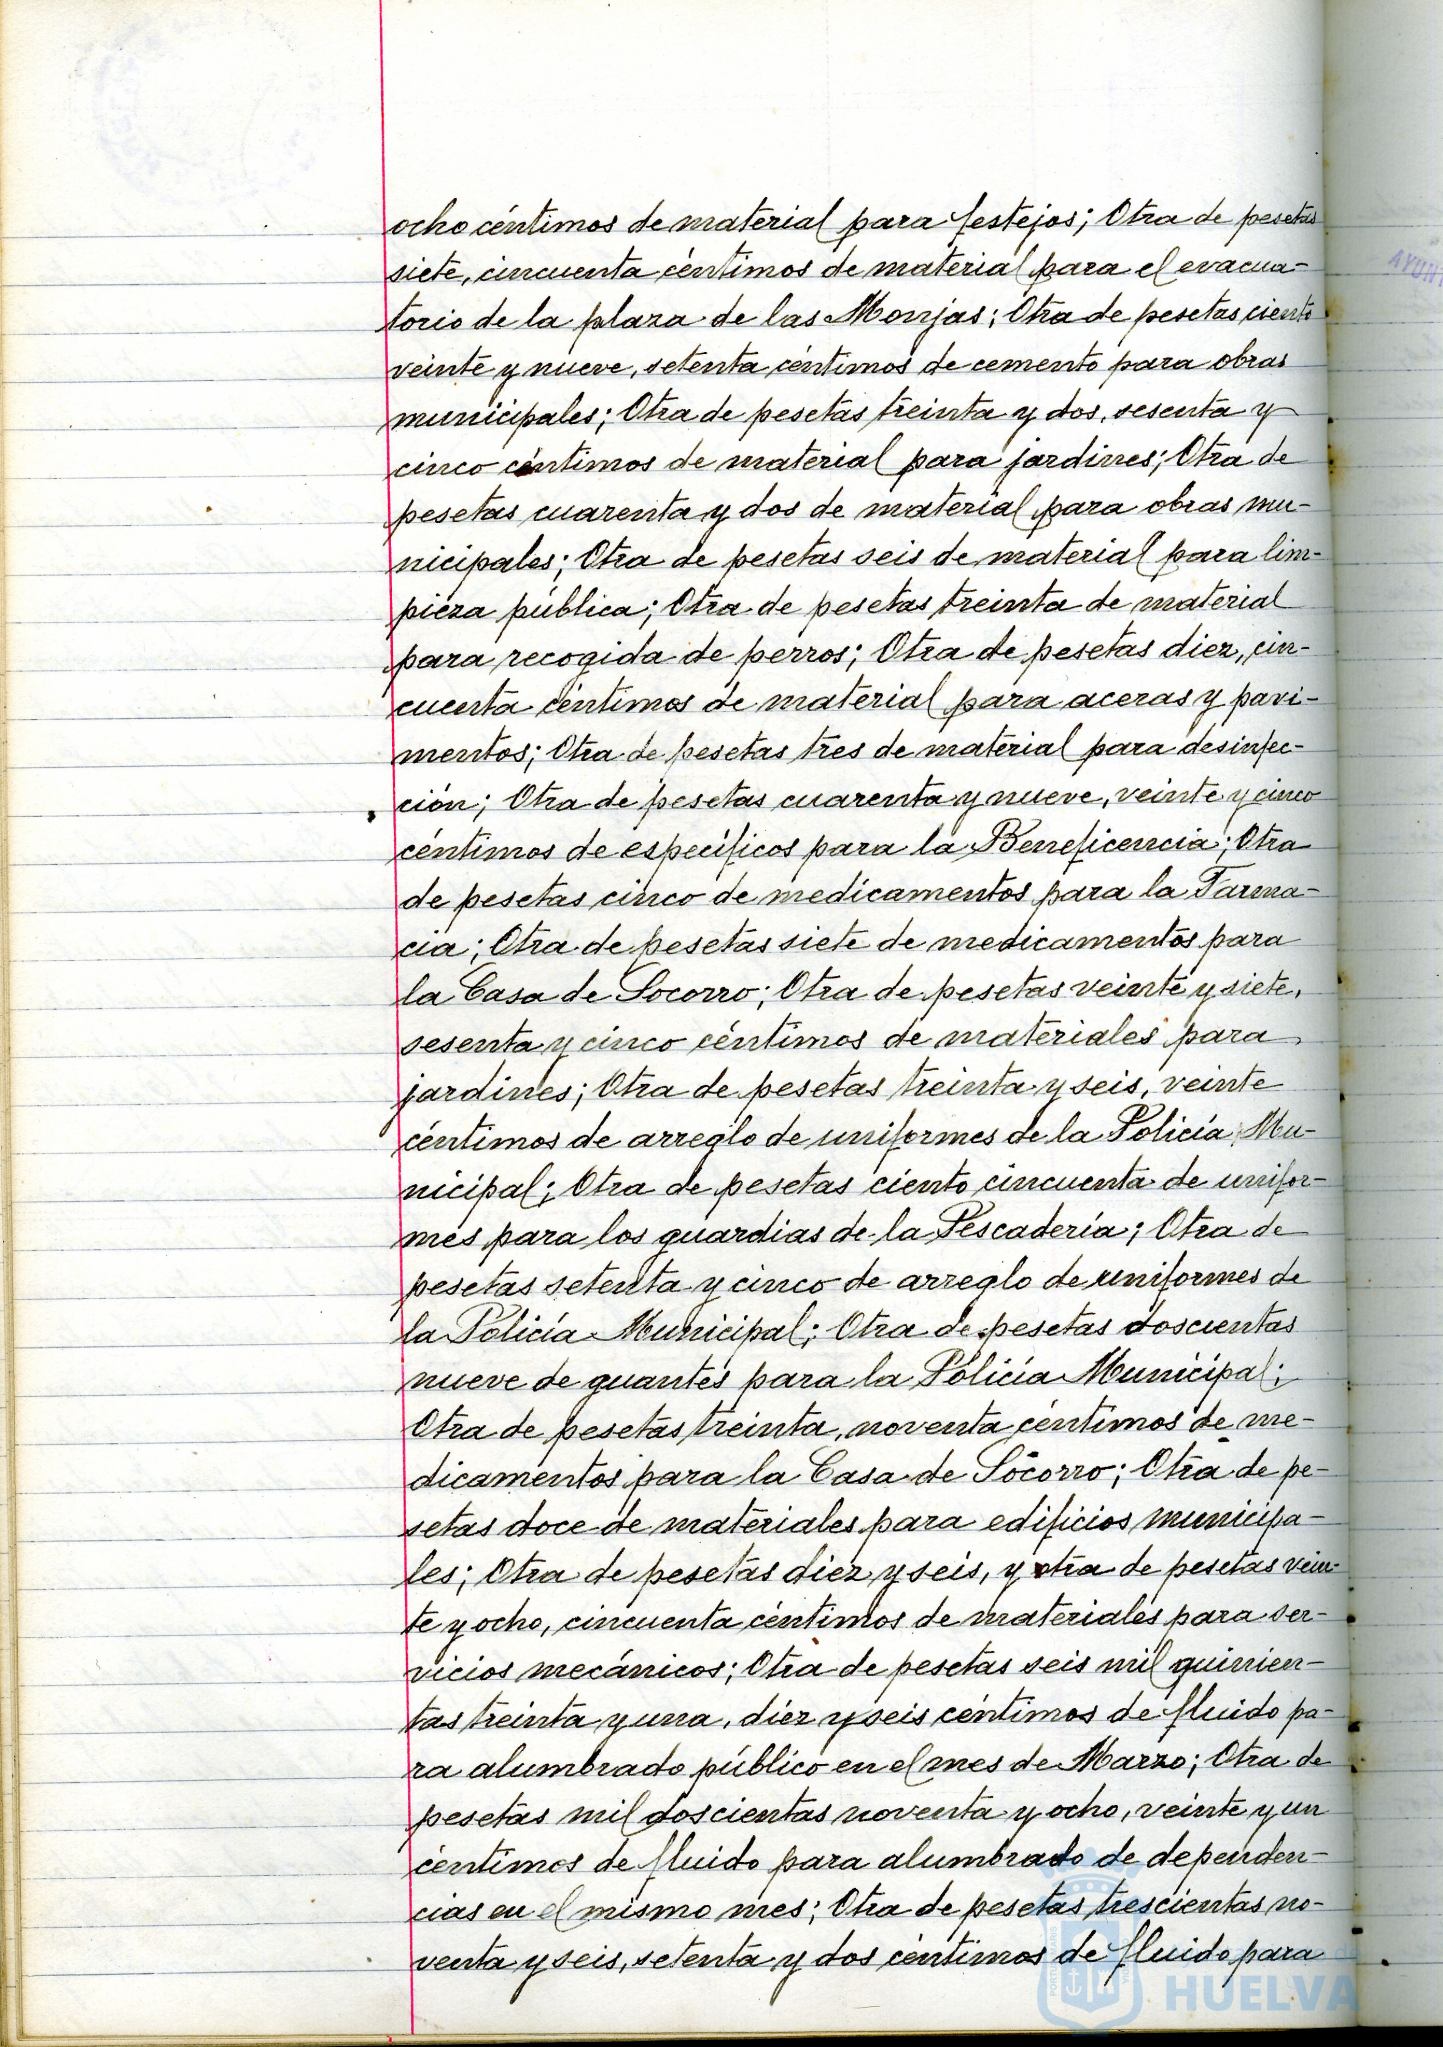 ocho céntimos de material para festejos; Otra de pesetas
siete, cincuenta céntimos de material para el evacua-
torio de la plaza de las Monjas; Otra de pesetas ciento
veinte y nueve, setenta céntimos de cemento para obras
municipales; Otra de pesetas treinta y dos, sesenta y
cinco céntimos de material para jardines; Otra de
pesetas cuarenta y dos de material para obras mu-
nicipales; Otra de pesetas seis de material para lim-
pieza pública; Otra de pesetas treinta de material
para recogida de perros; Otra de pesetas diez, cin-
cuenta céntimos de material para aceras y pavi-
mentos; Otra de pesetas tres de material para desinfec-
ción; Otra de pesetas cuarenta y nueve, veinte y cinco
céntimos de específicos para la Beneficencia; Otra
de pesetas cinco de medicamentos para la Farma-
cia; Otra de pesetas siete de medicamentos para
la Casa de Socorro; Otra de pesetas veinte y siete,
sesenta y cinco céntimos de materiales para
jardines; Otra de pesetas treinta y seis, veinte
céntimos de arreglo de uniformes de la Policía Mu-
nicipal; Otra de pesetas ciento cincuenta de unifor-
mes para los guardias de la Pescadería; Otra de
pesetas setenta y cinco de arreglo de uniformes de
la Policía Municipal; Otra de pesetas doscientas
nueve de guantes para la Policía Municipal;
Otra de pesetas treinta, noventa céntimos de me-
dicamentos para la Casa de Socorro; Otra de pe-
setas doce de materiales para edificios municipa-
les; Otra de pesetas diez y seis, y otra de pesetas vein-
te y ocho, cincuenta céntimos de materiales para ser-
vicios mecánicos; Otra de pesetas seis mil quinien-
tas treinta y una, diez y seis céntimos de fluido pa-
ra alumbrado público en el mes de Marzo; Otra de
pesetas mil doscientas noventa y ocho, veinte y un
céntimos de fluido para alumbrado de dependen-
cias en el mismo mes; Otra de pesetas trescientas no-
venta y seis, setenta y dos céntimos de fluido para
HUELVA